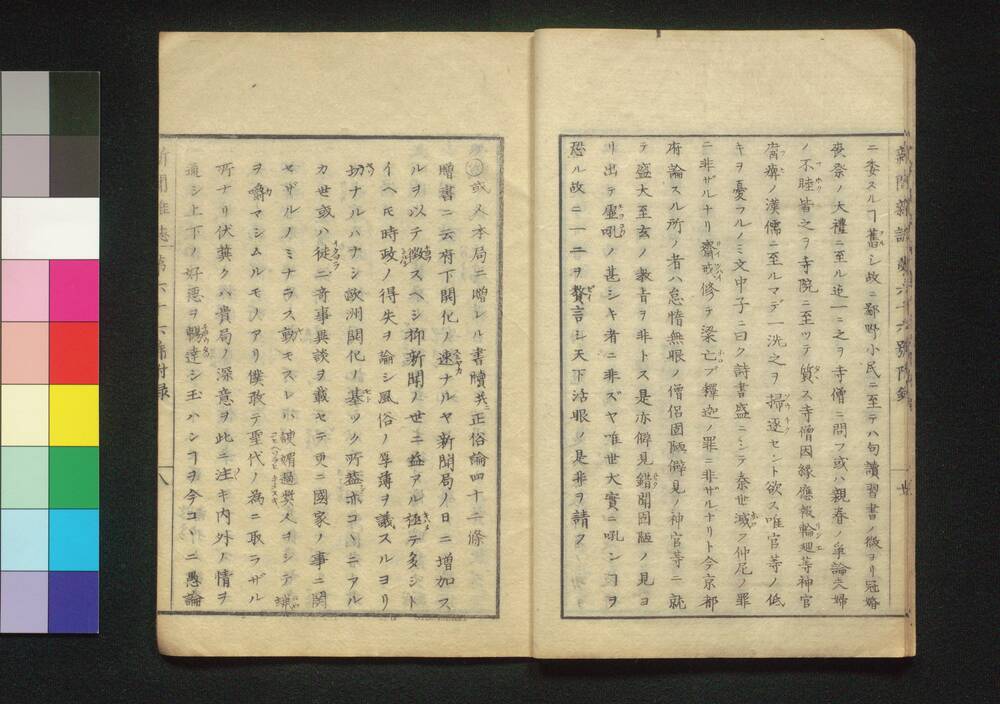 ニ委スルヿ舊シ故ニ鄙野小民ニ至テハ句讀習書ノ微ヨリ冠婚
喪祭ノ大禮ニ至ル迄一ニ之ヲ寺僧ニ問フ或ハ親眷ノ爭論夫婦
ノ不睦皆之ヲ寺院ニ至ツテ質ス寺僧因縁應報輪廻等神官
ノ漢儒ニ至ルマデ一洗之ヲ掃逐セント欲ス唯官等ノ低
キヲ憂フルノミ文中子ニ曰ク詩書盛ニシテ秦世滅フ仲尼ノ罪
ニ非ザルナリ齋戒修テ梁亡ブ釋迦ノ罪ニ非ザルナリト今京都
府論スル所ノ者ハ怠惰無眼ノ僧侶固陋僻見ノ神官等ニ就
テ盛大至玄ノ教旨ヲ非トス是亦僻見錯聞固陋ノ見ヨ
リ出テ靈吼ノ甚シキ者ニ非ズヤ唯世大實ニ吼ンヿヲ
恐ル故ニ一二ヲ贅言シ天下活眼ノ是非ヲ請フ
○或人本局ニ贈レル書牘共ニ正俗論四十二條
贈書ニ云府下開化ノ速ナルヤ新聞局ノ日ニ増加ス
ルヲ以テ徴スヘシ抑新聞ノ世ニ益アル極テ多シト
イヘ𪜈時政ノ得失ヲ論シ風俗ノ厚薄ヲ議スルヨリ
切ナルハナシ歐洲開化ノ基ツク所蓋亦コヽニアル
カ世或ハ徒ニ奇事異談ヲ載セテ更ニ國家ノ事ニ関
セザルノミナラス動モスレバ諛媚過奬人ヲシテ
ヲ嚼マシムルモノアリ僕敢テ聖代ノ為ニ取ラザル
所ナリ伏冀クハ貴局ノ深意ヲ此ニ注キ内外ノ情ヲ
通シ上下ノ好惡ヲ暢達シ玉ハンヿヲ今コヽニ愚論
新聞雜誌 第六十六號附録 八